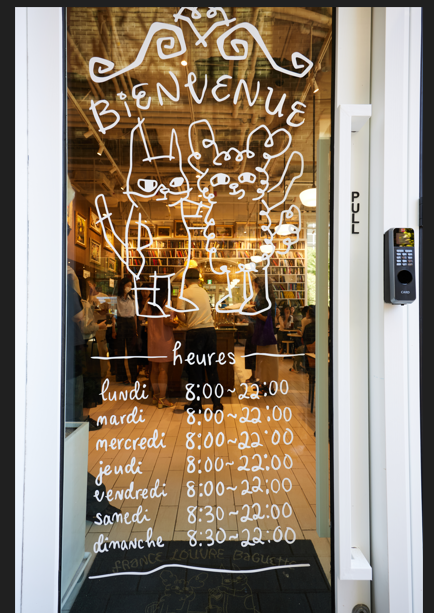 BiENVENUE
PULL
heures
lundi 8:00~22:00
mardi 8:00~22:00
mercredi 8:00~22:00
jeudi 8:00~22:00
vendredi 8:00~22:00
samedi 8:30~22:00
dimanche 8:30~22:00
FRANCE LOUVRE BAGUETTE